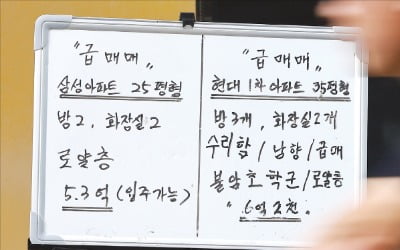 "급매매"
삼성아파트 25평형
방2, 화장실2
로얄층
5.3억 (입주가능)
"급매매"
현대 1차 아파트 35평형
방3개, 화장실2개
수리함/남향/급매
불암초학군/로얄층
"6억2천"